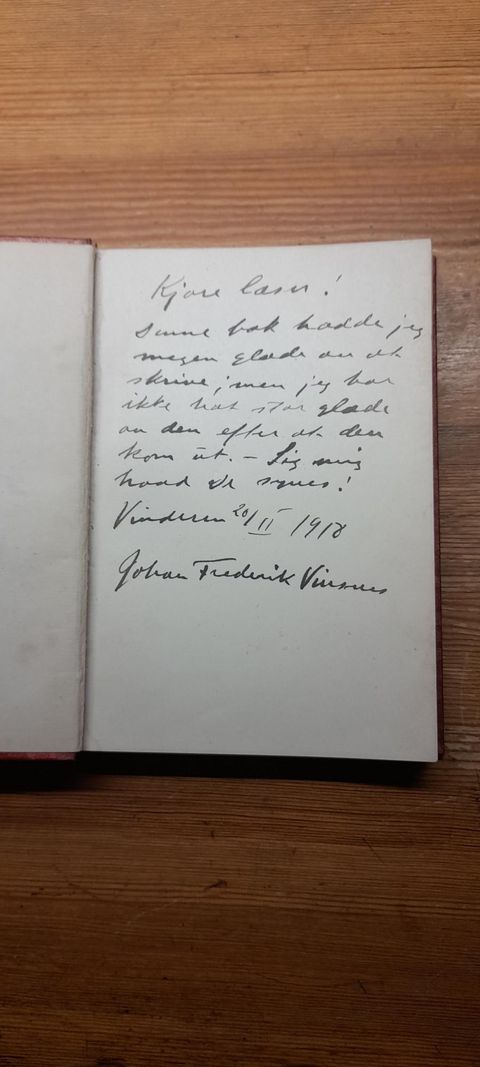 Kjære læser!
Denne bok hadde jeg
megen glæde av at
skrive; men jeg har
ikke hat stor glæde
av den efter at den
kom ut. – Sig mig
hvad De synes!
Vinderen 20/II 1918
Johan Frederik Vinsnes